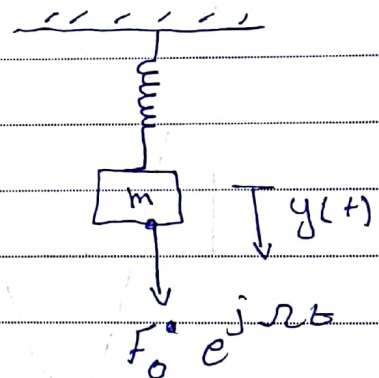 m
y(t)
F₀ e^{jΩt}